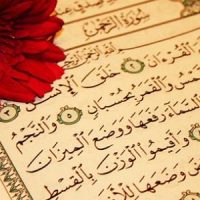 سُورَةُ الرَّحْمَٰن
الْقُرْءَانَ خَلَقَ
وَالْقَمَرُ بِحُسْبَانٍ ٥ وَالنَّجْمُ
السَّمَاءَ رَفَعَهَا وَوَضَعَ الْمِيزَانَ
وَأَقِيمُوا الْوَزْنَ بِالْقِسْطِ
وَضَعَهَا